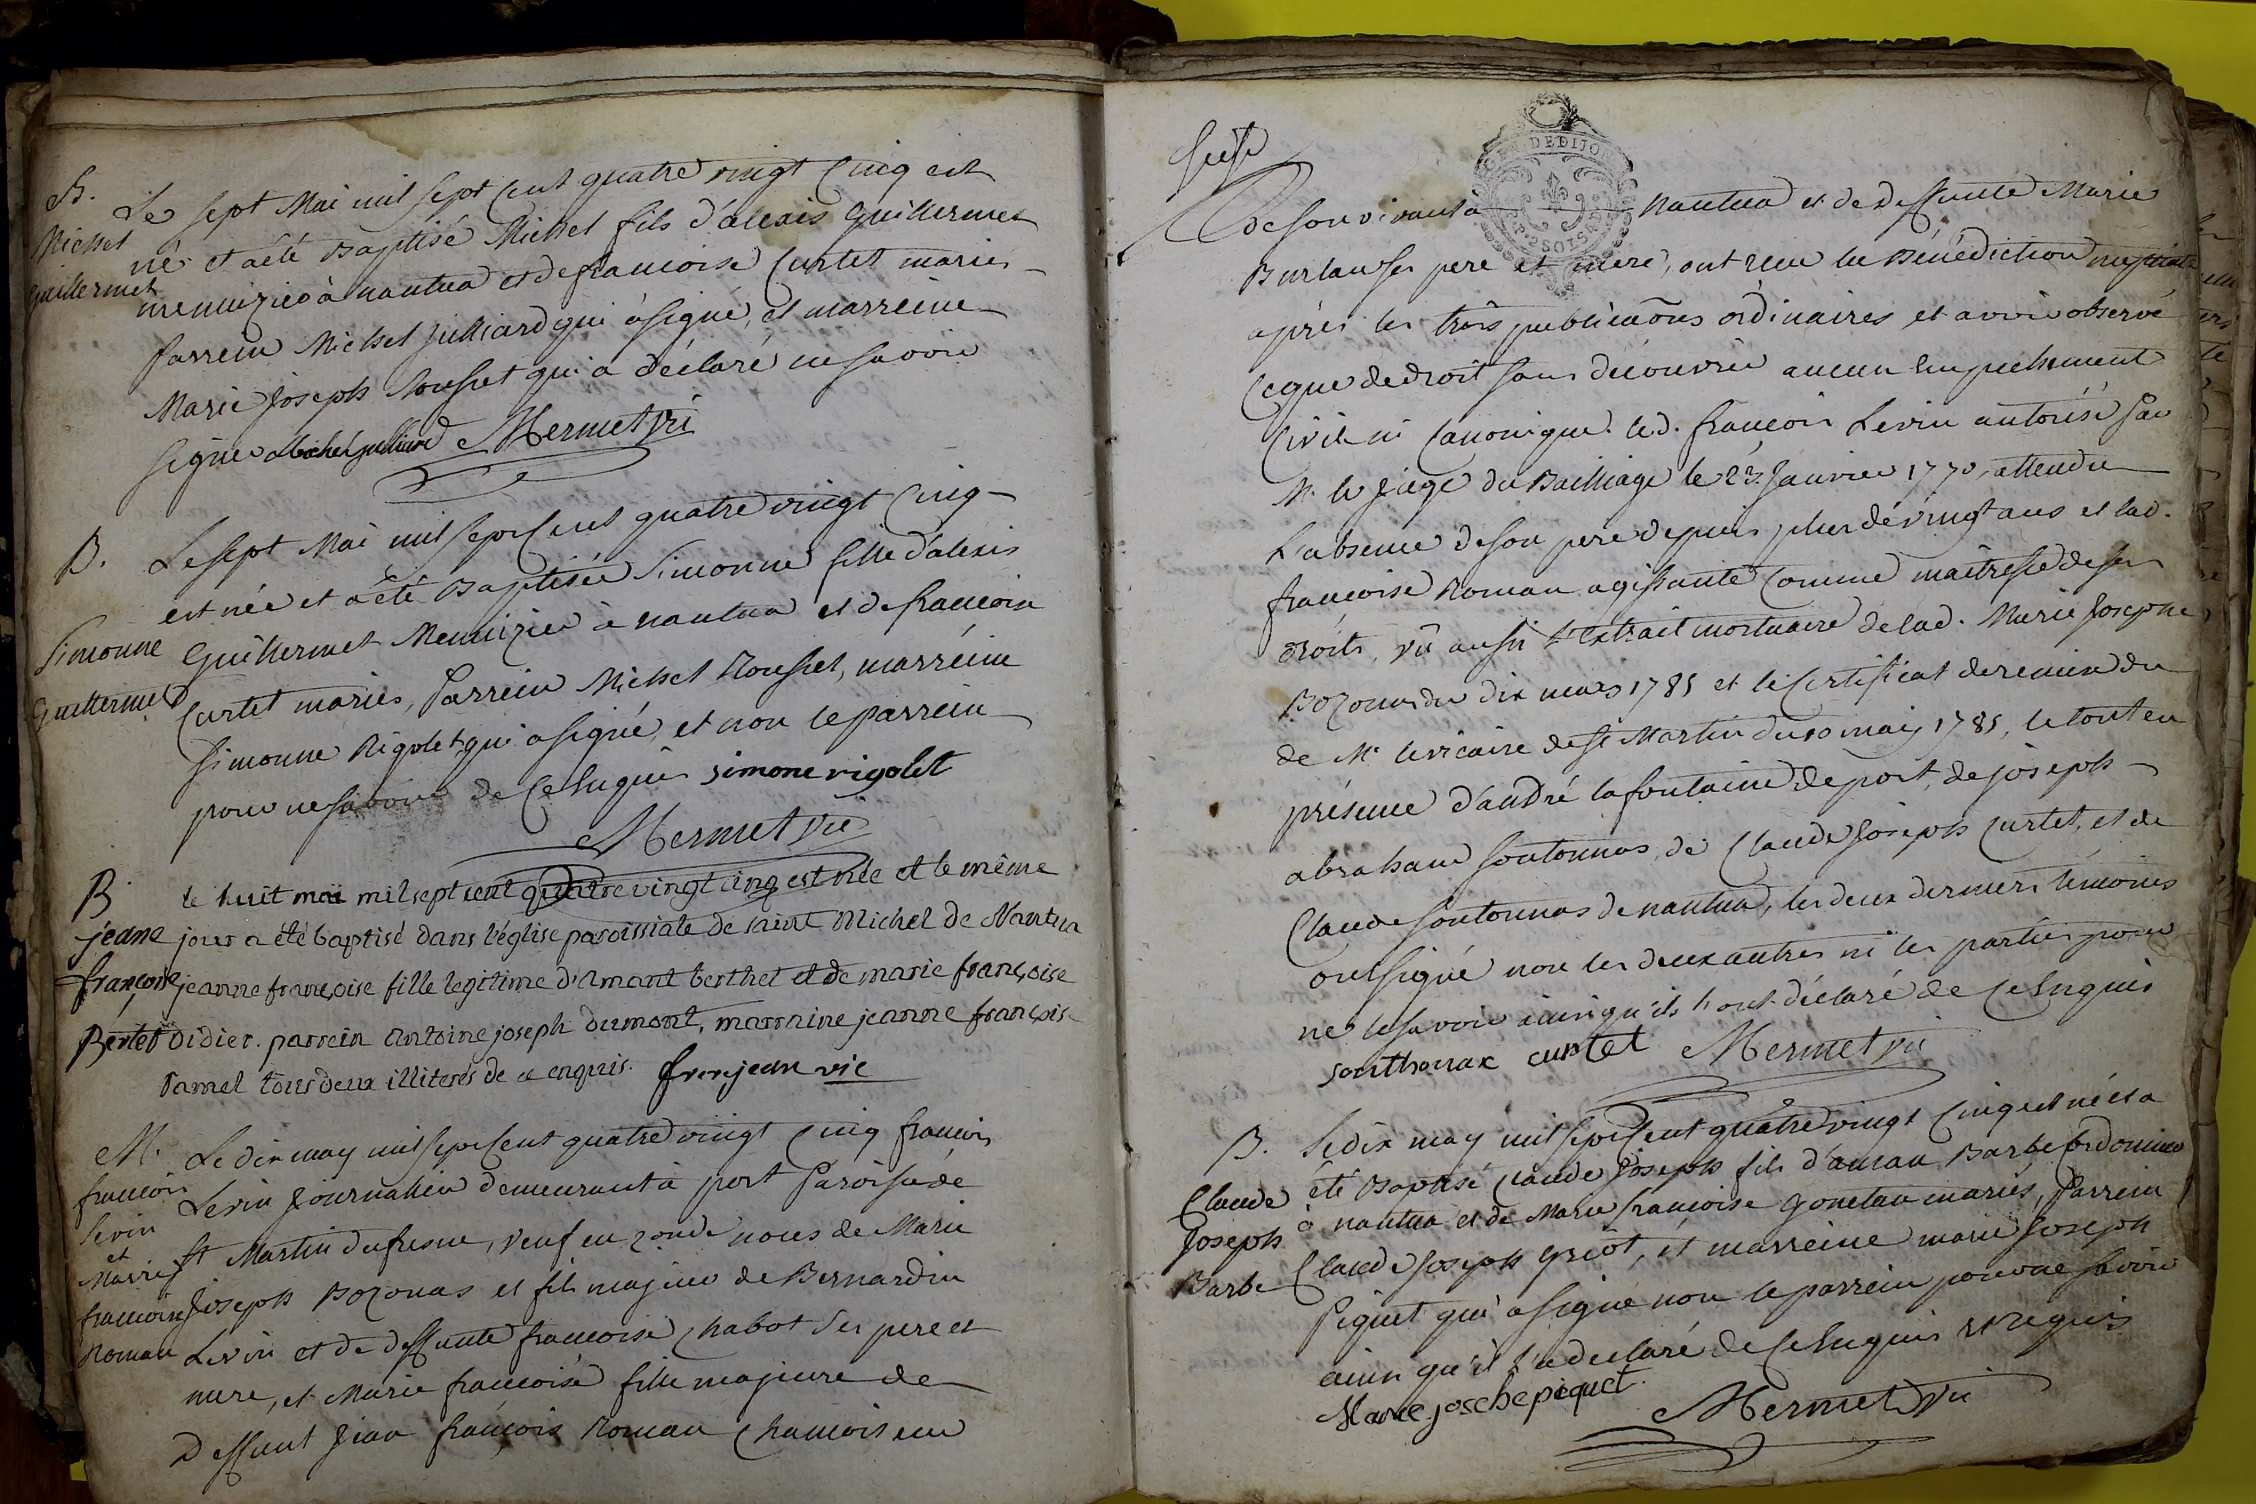 B.
Michel
Guillermet
Le sept Mai mil sept cent quatre vingt Cinq est
né et a été Baptisé Michel fils d'alexis Guillermet
menuizier à nantua et de francoise Curtet mariés
parrein Michel Julliard qui a signé, et marreine
Marie Joseph Rousset qui a déclaré ne savoir
signer Michel julliard Mermet vi
B.
Simonne
Guillermet
Le sept Mai mil sept Cent quatre vingt Cinq
est née et a été Baptisée Simonne fille d'alexis
Guillermet Menuizier à nantua et de francoise
Curtet mariés, Parrein Michel Rousset, marreine
Simonne Rigolet qui a signé, et non le parrein
pour ne savoir de Ce Enquis simone rigolet
Mermet vic
B
jeane
françoise
Bertet
le huit mai mil sept cent quatre vingt cinq est née et le même
jour a été baptisé dans l'église paroissiale de saint Michel de Nantua
jeanne françoise fille legitime d'Amant berthet et de marie françoise
Didier. parrein Antoine joseph dumont, marraine jeanne françoise
Tamel tous deux illiterés de ce enquis. jean vic
M.
francois
Levin
et
Marie
francoise
Roman
Le dix may mil sept Cent quatre vingt Cinq francois
Levin Journalier demeurant à port Paroisse de
St Martin dufresne, veuf en 2onde noces de Marie
Joseph Bozonas et fils majeur de Bernardin
Levin et de deffunte francoise Chabot ses pere et
mere, et Marie francoise fille majeure de
Deffunt Jean françois Roman Chamoiseur
suite
GEN DE DIJON
P. 2 SOLS
de son vivant à nantua et de deffunte Marie
Burlan ses pere et mere, ont recu la Bénédiction nuptiale
après les trois publications ordinaires et avoir observé
Ce que de droit sans découvrir aucun Empechement
Civil ni Canonique. led. francois Levin autorisé Par
Mr le Juge du Bailliage le 23 Janvier 1770, attendu
L'absence de son pere depuis plus de vingt ans et lad.
francoise Roman agissante Comme maitresse de ses
droits, vû aussi L'extrait mortuaire de lad. Marie Josephe
Bozonas du dix mars 1785 et le Certificat de remise du
de Mr le vicaire de St Martin du 10 may 1785, le tout en
présence d'andré lafontaine de port, de joseph
abraham Sontonnas, de Claude Joseph Curtet, et de
Claude Sontonnas de nantua, les deux derniers témoins
ont signé non les deux autres ni les parties pour
ne le savoir ainsi qu'ils l'ont déclaré de Ce Enquis
sonthonax curtet Mermet vic
B.
Claude
Joseph
Barbe
Le dix may mil sept Cent quatre vingt Cinq est né et a
été Baptisé Claude Joseph fils d'aman Barbe Cordonnier
à nantua et de Marie francoise Gonetan mariés, Parrein
Claude Joseph Griot, et marreine marie Joseph
Piquet qui a signé non le parrein pour ne savoir
ainsi qu'il l'a declaré de Ce Enquis et requis
Marie josephe piquet.
Mermet vic